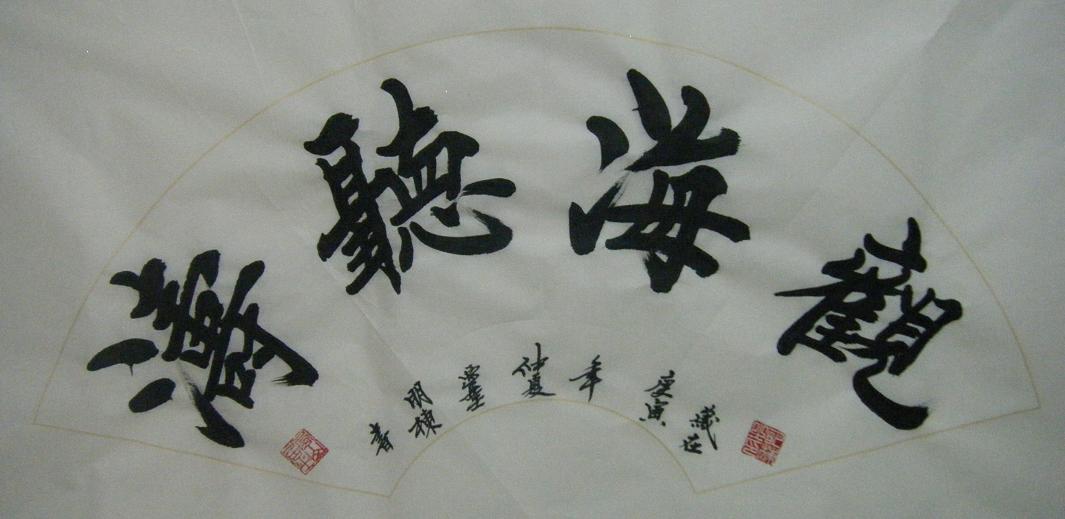 觀海聽濤
歲在
庚寅
年
仲夏
明棟
書